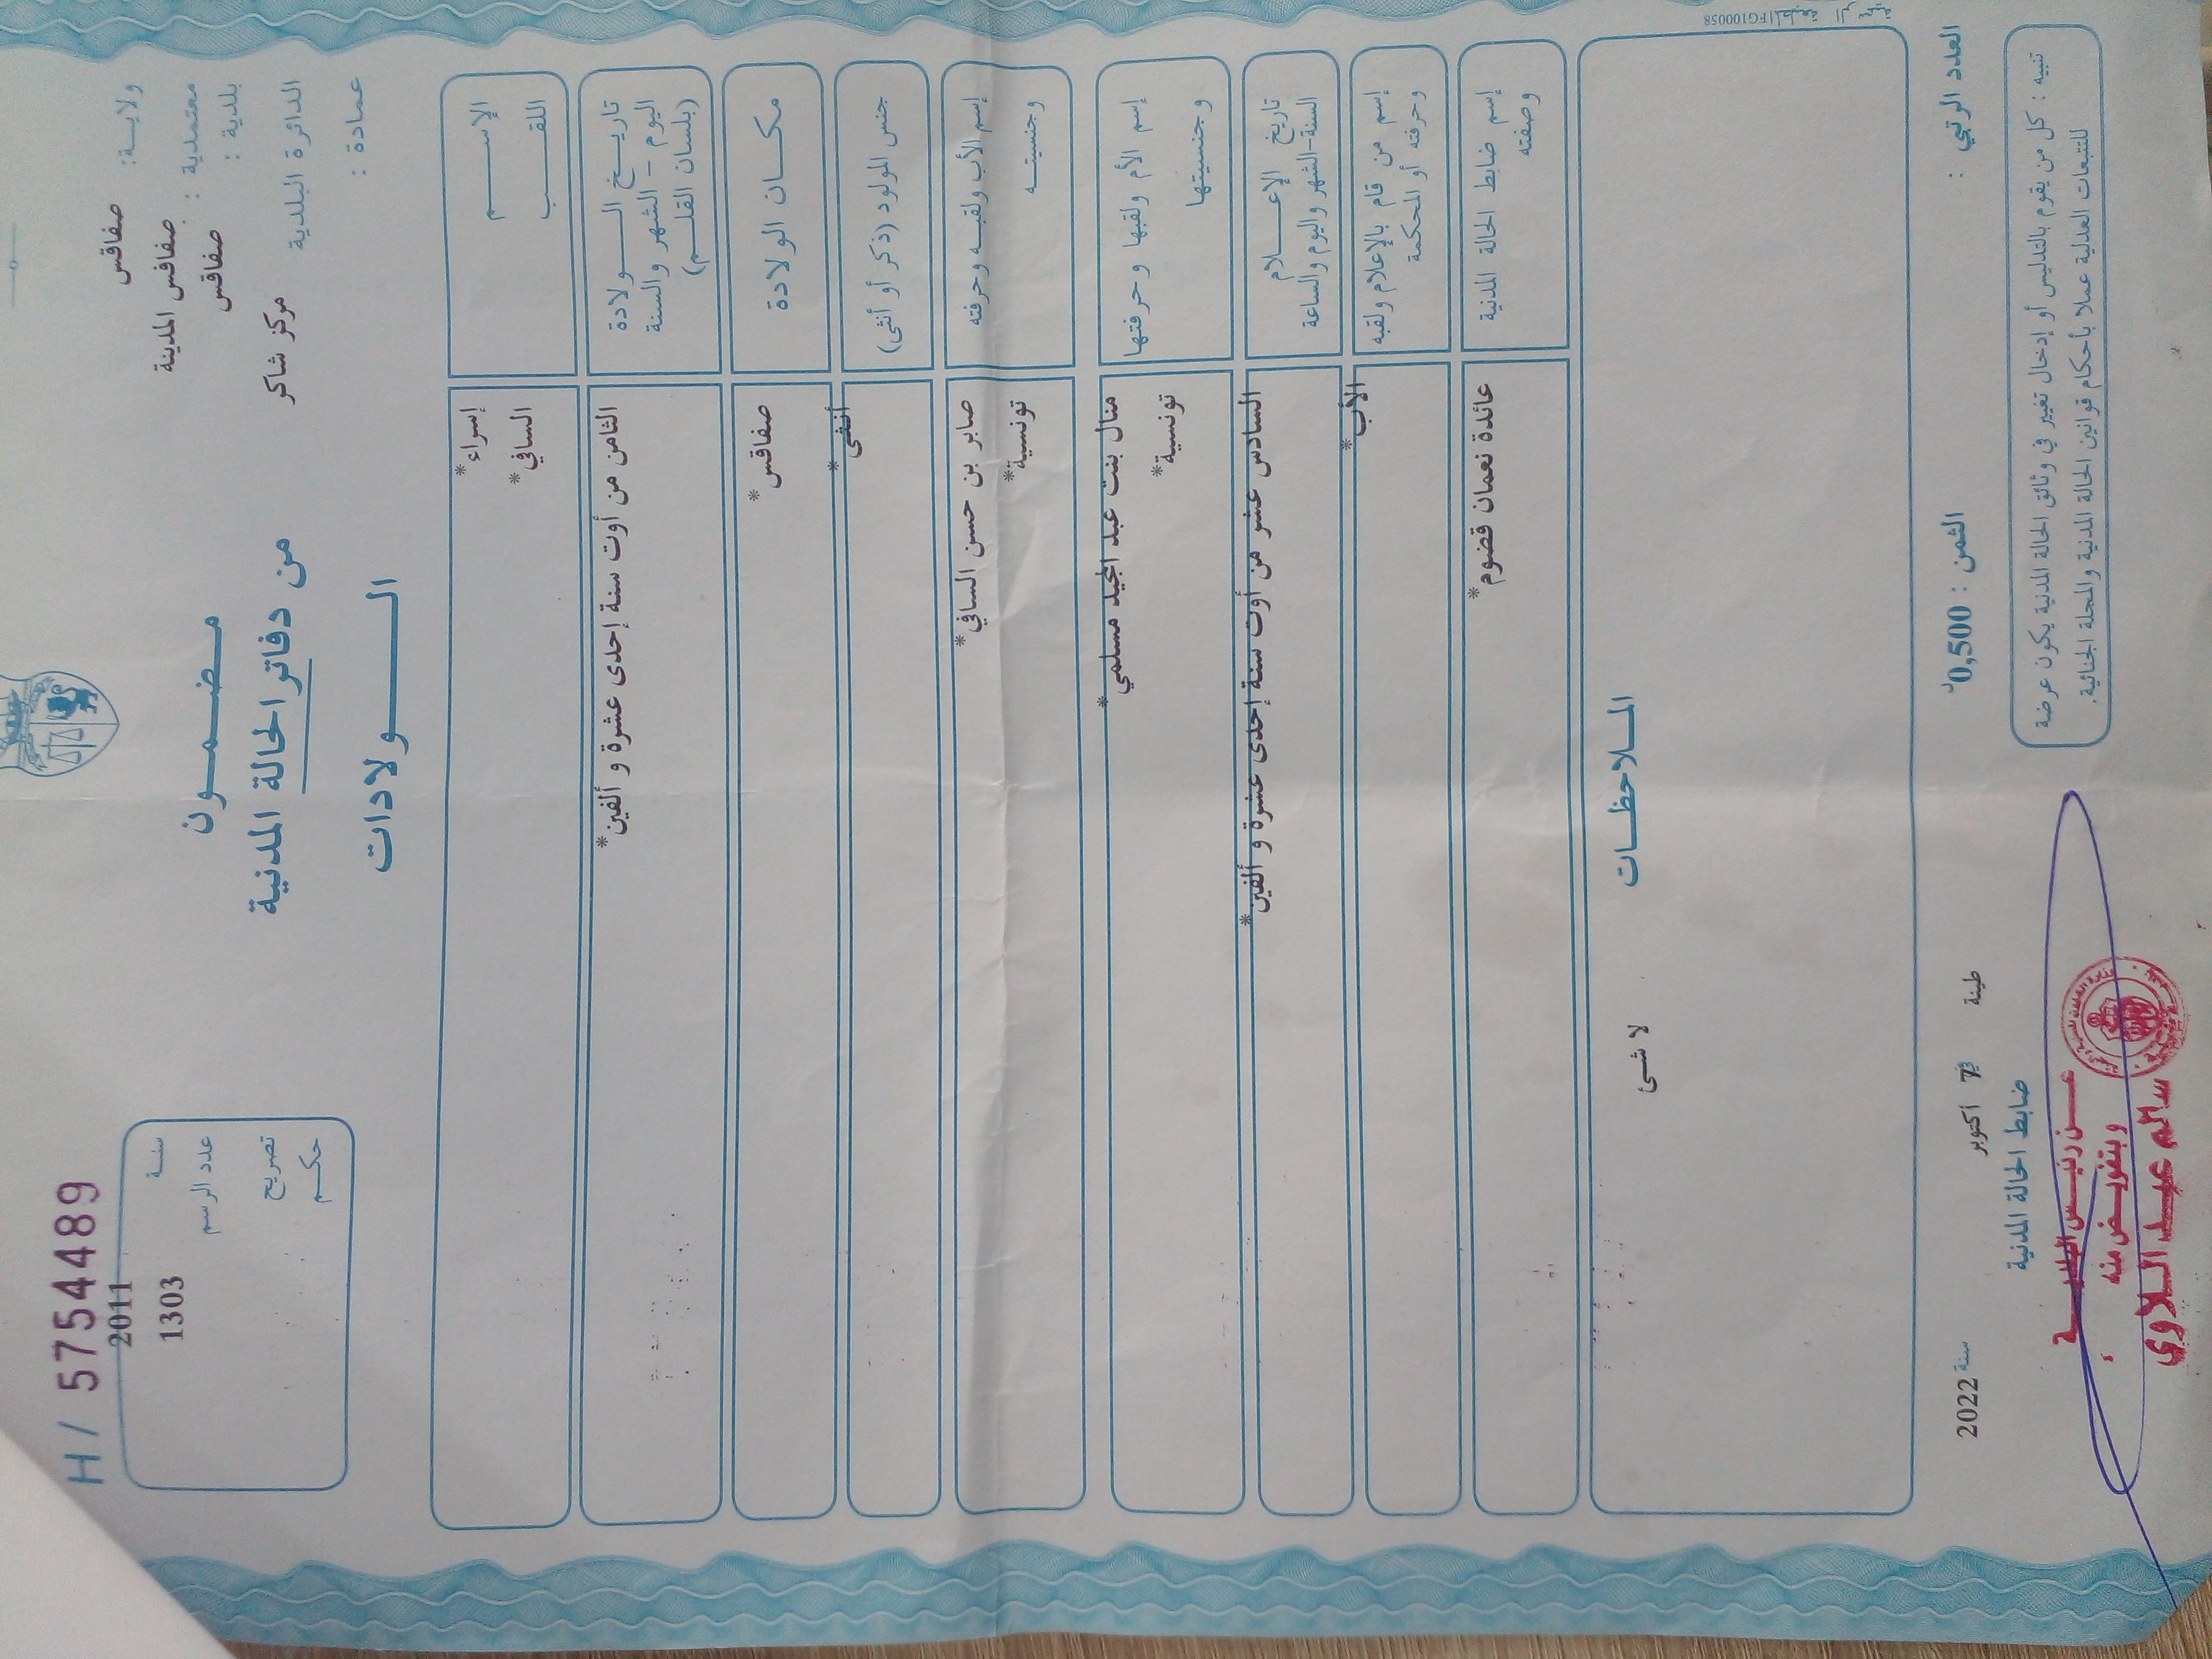 H / 5754489
ولاية: صفاقس
معتمدية : صفاقس المدينة
بلدية : صفاقس
الدائرة البلدية مركز شاكر
عمادة :
مضمون
من دفاتر الحالة المدنية
الولادات
سنة 2011
عدد الرسم 1303
تصريح
حكم
الإسم إسراء*
اللقب السافي*
تاريخ الولادة
اليوم - الشهر والسنة
(بلسان القلم)
الثامن من أوت سنة إحدى عشرة و ألفين*
مكان الولادة صفاقس*
جنس المولود (ذكر أو أنثى) أنثى*
إسم الأب ولقبه وحرفته صابر بن حسن السافي*
وجنسيته تونسية*
إسم الأم ولقبها وحرفتها منال بنت عبد المجيد مسلمي*
وجنسيتها تونسية*
تاريخ الإعلام
السنة-الشهر واليوم والساعة
السادس عشر من أوت سنة إحدى عشرة و ألفين*
إسم من قام بالإعلام ولقبه
وحرفته أو المحكمة
الأب*
إسم ضابط الحالة المدنية
وصفته
عائدة نعمان قضوم*
الملاحظات
لا شئ
FG100058
العدد الرتبي :
الثمن : 0,500د
طينة في 7 أكتوبر سنة 2022
ضابط الحالة المدنية
تنبيه : كل من يقوم بالتدليس أو إدخال تغيير في وثائق الحالة المدنية يكون عرضة
للتتبعات العدلية عملا بأحكام قوانين الحالة المدنية والمجلة الجنائية.
عن رئيس البلدية
وبتفويض منه
سالم عبد اللاوي